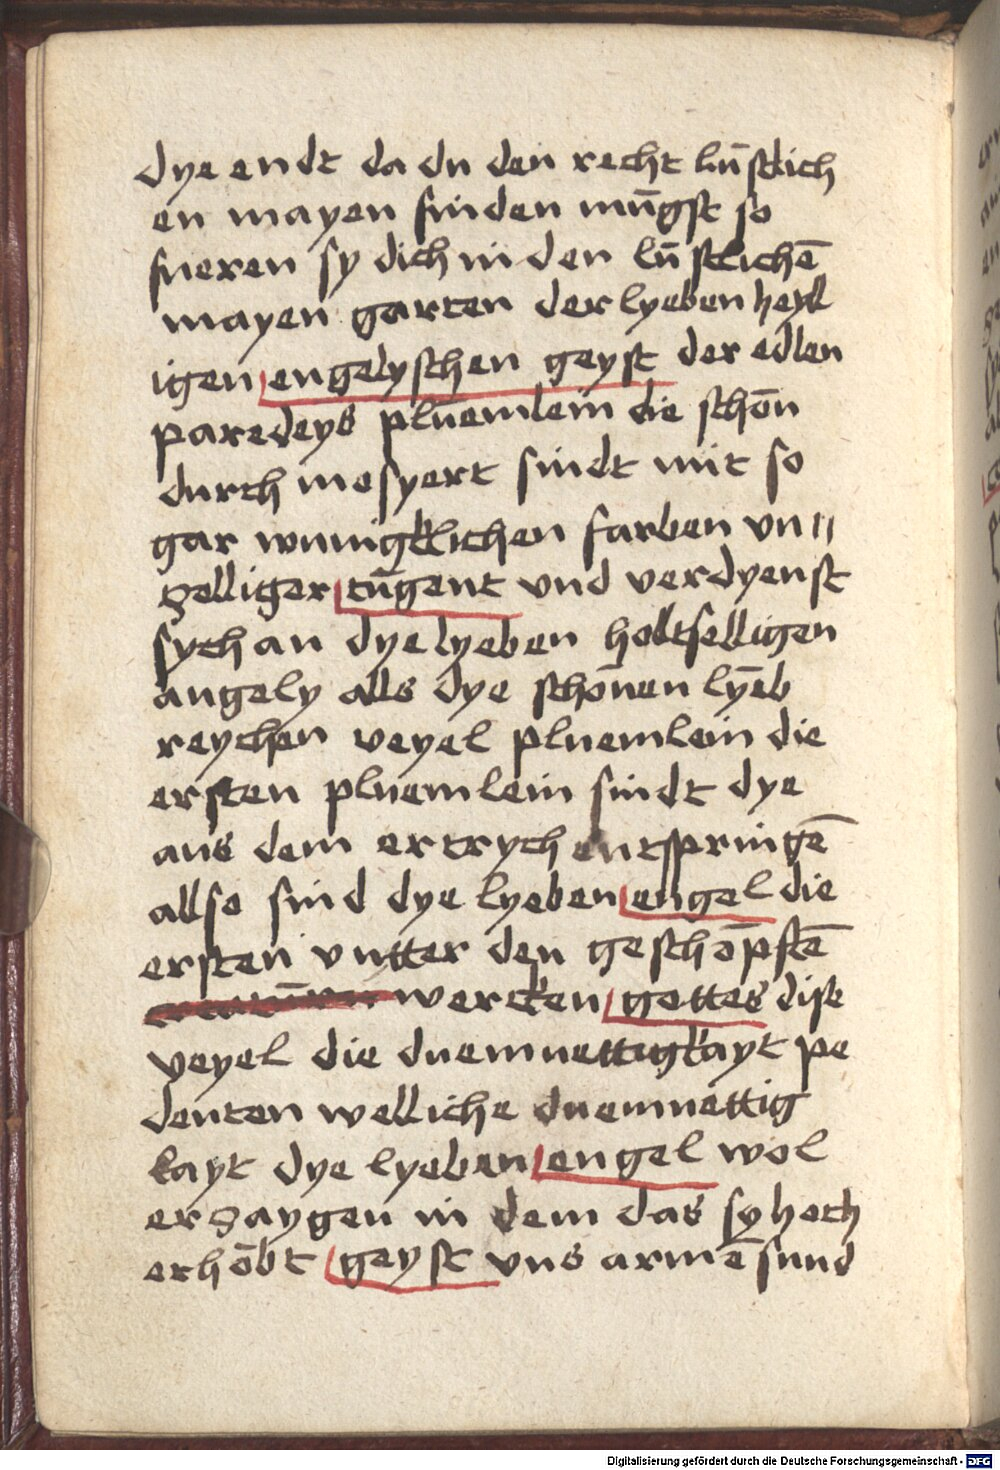 dye endt da du den recht lūstlich
en mayen finden mūgst so
fueren sy dich in den lūstlichē
mayen garten der lyeben heyll
igen engelyschen geyst der edlen
paredeys plūemlein die schōn
durch mosyert sindt mit so
gar wunigklichen farben vn//
zelliger tūgent vnd verdyenst
sych an dye lyeben holtselligen
angely alls dye schōnen lȳeb
reychen veyel pluemlein die
ersten pluemlein sindt dye
aus dem ertrych entspringē
allso sind dye lyeben engel die
ersten vntter den geschōpftē
wercken gottes dise
veyel die duemuettigkayt pe
deuten welliche duemuettig
kayt dye lyeben engel wol
erzaygen in dem das sy hoch
erhōbt geyst vns armē sund
Digitalisierung gefördert durch die Deutsche Forschungsgemeinschaft - DFG